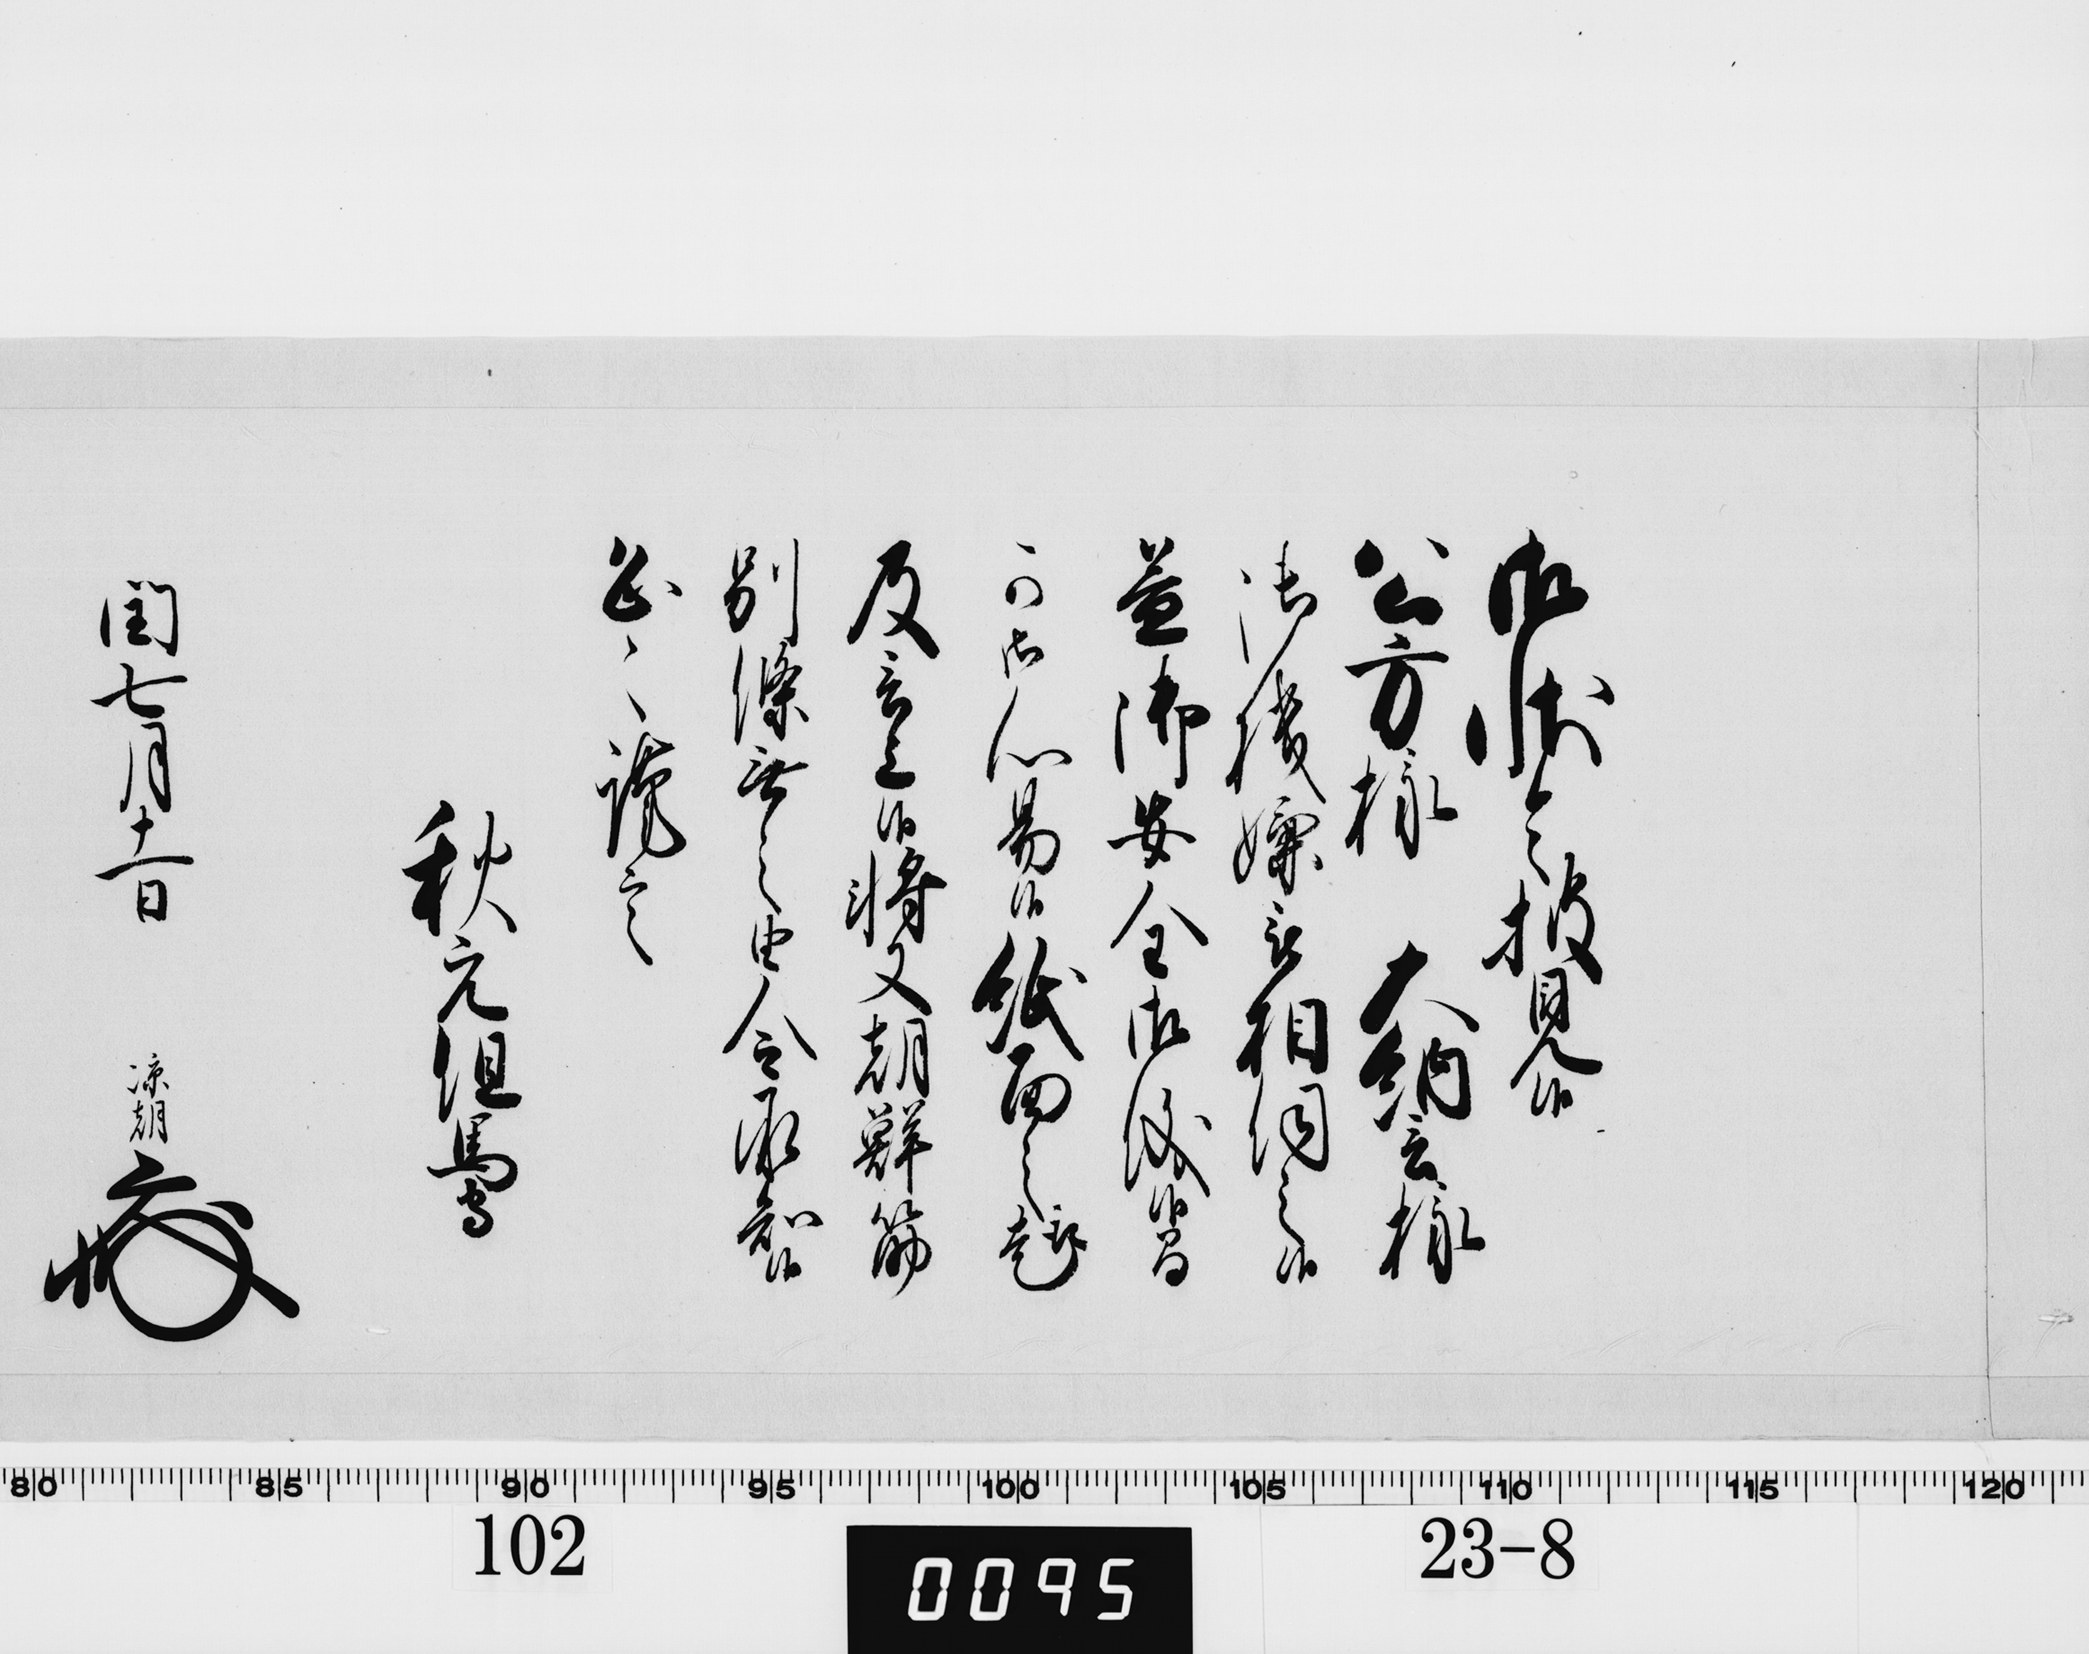 御状令披見候
公方様　大納言様
御機嫌被相伺之候
益御安全御儀候間
可御心易候紙面之趣
及言上候将又朝鮮筋
別條無之由令承知候
恐々謹言
秋元但馬守
閏七月十一日　凉朝
80 85 90 95 100 105 110 115 120
102 0095 23-8